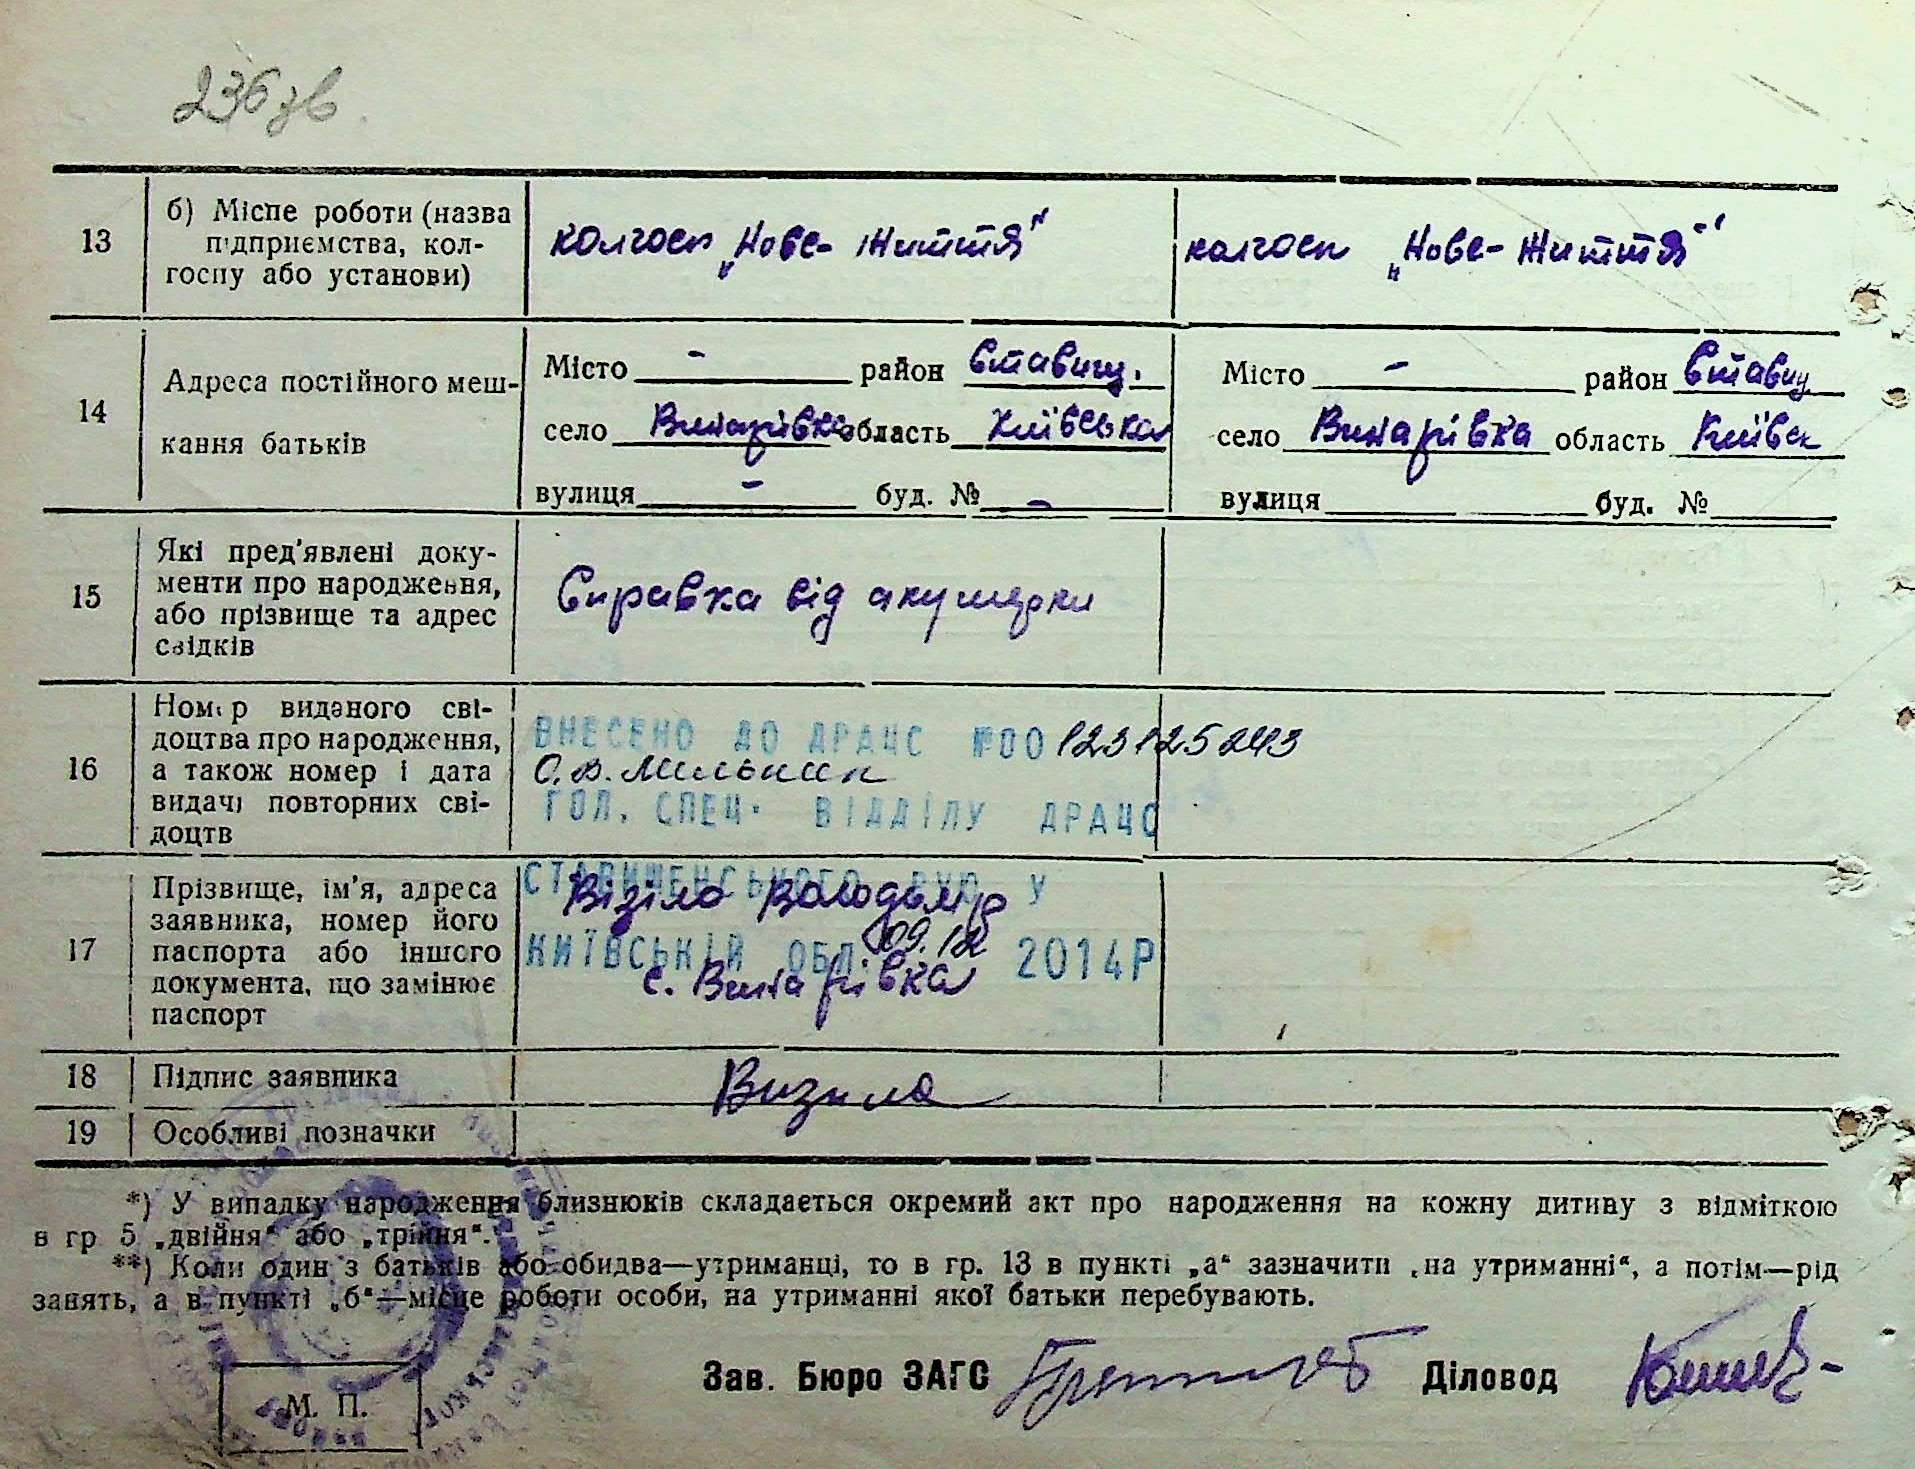 236 зв.
13
б) Місце роботи (назва
підприємства, кол-
госпу або установи)
колгосп „Нове-Життя"
колгосп „Нове-Життя"
14
Адреса постійного меш-
кання батьків
Місто - район Ставищ.
село Винарівка область Київська
вулиця - буд. № -
Місто - район Ставищ
село Винарівка область Київськ
вулиця буд. №
15
Які пред'явлені доку-
менти про народження,
або прізвище та адрес
свідків
Справка від акушерки
16
Номер виданого сві-
доцтва про народження,
а також номер і дата
видачі повторних сві-
доцтв
ВНЕСЕНО ДО ДРАЦС №00123125243
ГОЛ. СПЕЦ. ВІДДІЛУ ДРАЦС
17
Прізвище, ім'я, адреса
заявника, номер його
паспорта або іншого
документа, що замінює
паспорт
СТАВИЩЕНСЬКОГО РУЮ У
Візіло Володимир
КИЇВСЬКІЙ ОБЛ. 09.12 2014Р
с. Винарівка
18
Підпис заявника
Визила
19
Особливі позначки
*) У випадку народження близнюків складається окремий акт про народження на кожну дитину з відміткою
в гр 5 „двійня“ або „трійня“.
**) Коли один з батьків або обидва—утриманці, то в гр. 13 в пункті „а“ зазначити „на утриманні“, а потім—рід
занять, а в пункті „б“—місце роботи особи, на утриманні якої батьки перебувають.
Зав. Бюро ЗАГС
Діловод
М. П.